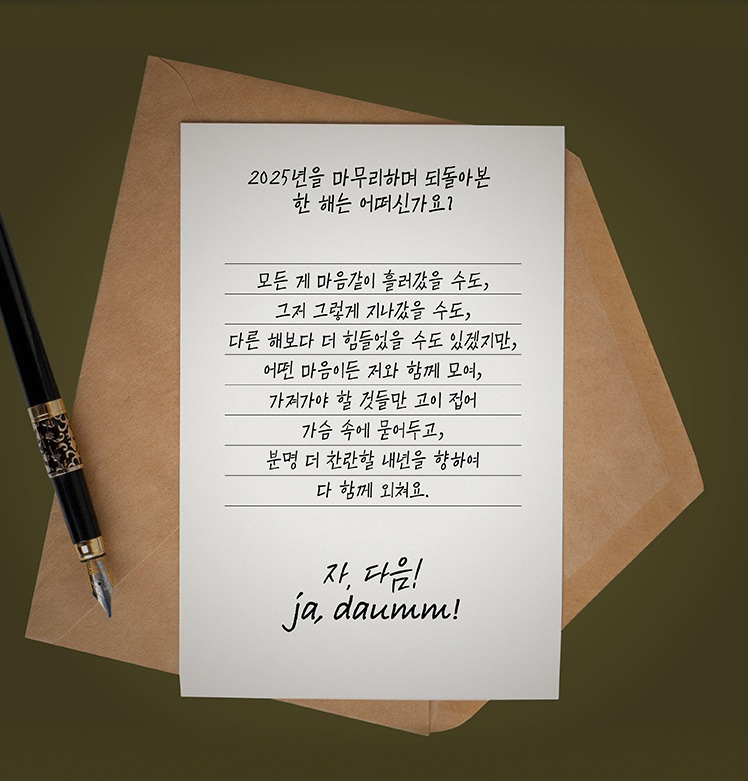 2025년을 마무리하며 되돌아본
한 해는 어떠신가요?
모든 게 마음같이 흘러갔을 수도,
그저 그렇게 지나갔을 수도,
다른 해보다 더 힘들었을 수도 있겠지만,
어떤 마음이든 저와 함께 모여,
가져가야 할 것들만 고이 접어
가슴 속에 묻어두고,
분명 더 찬란할 내년을 향하여
다 함께 외쳐요.
자, 다음!
ja, daumm!